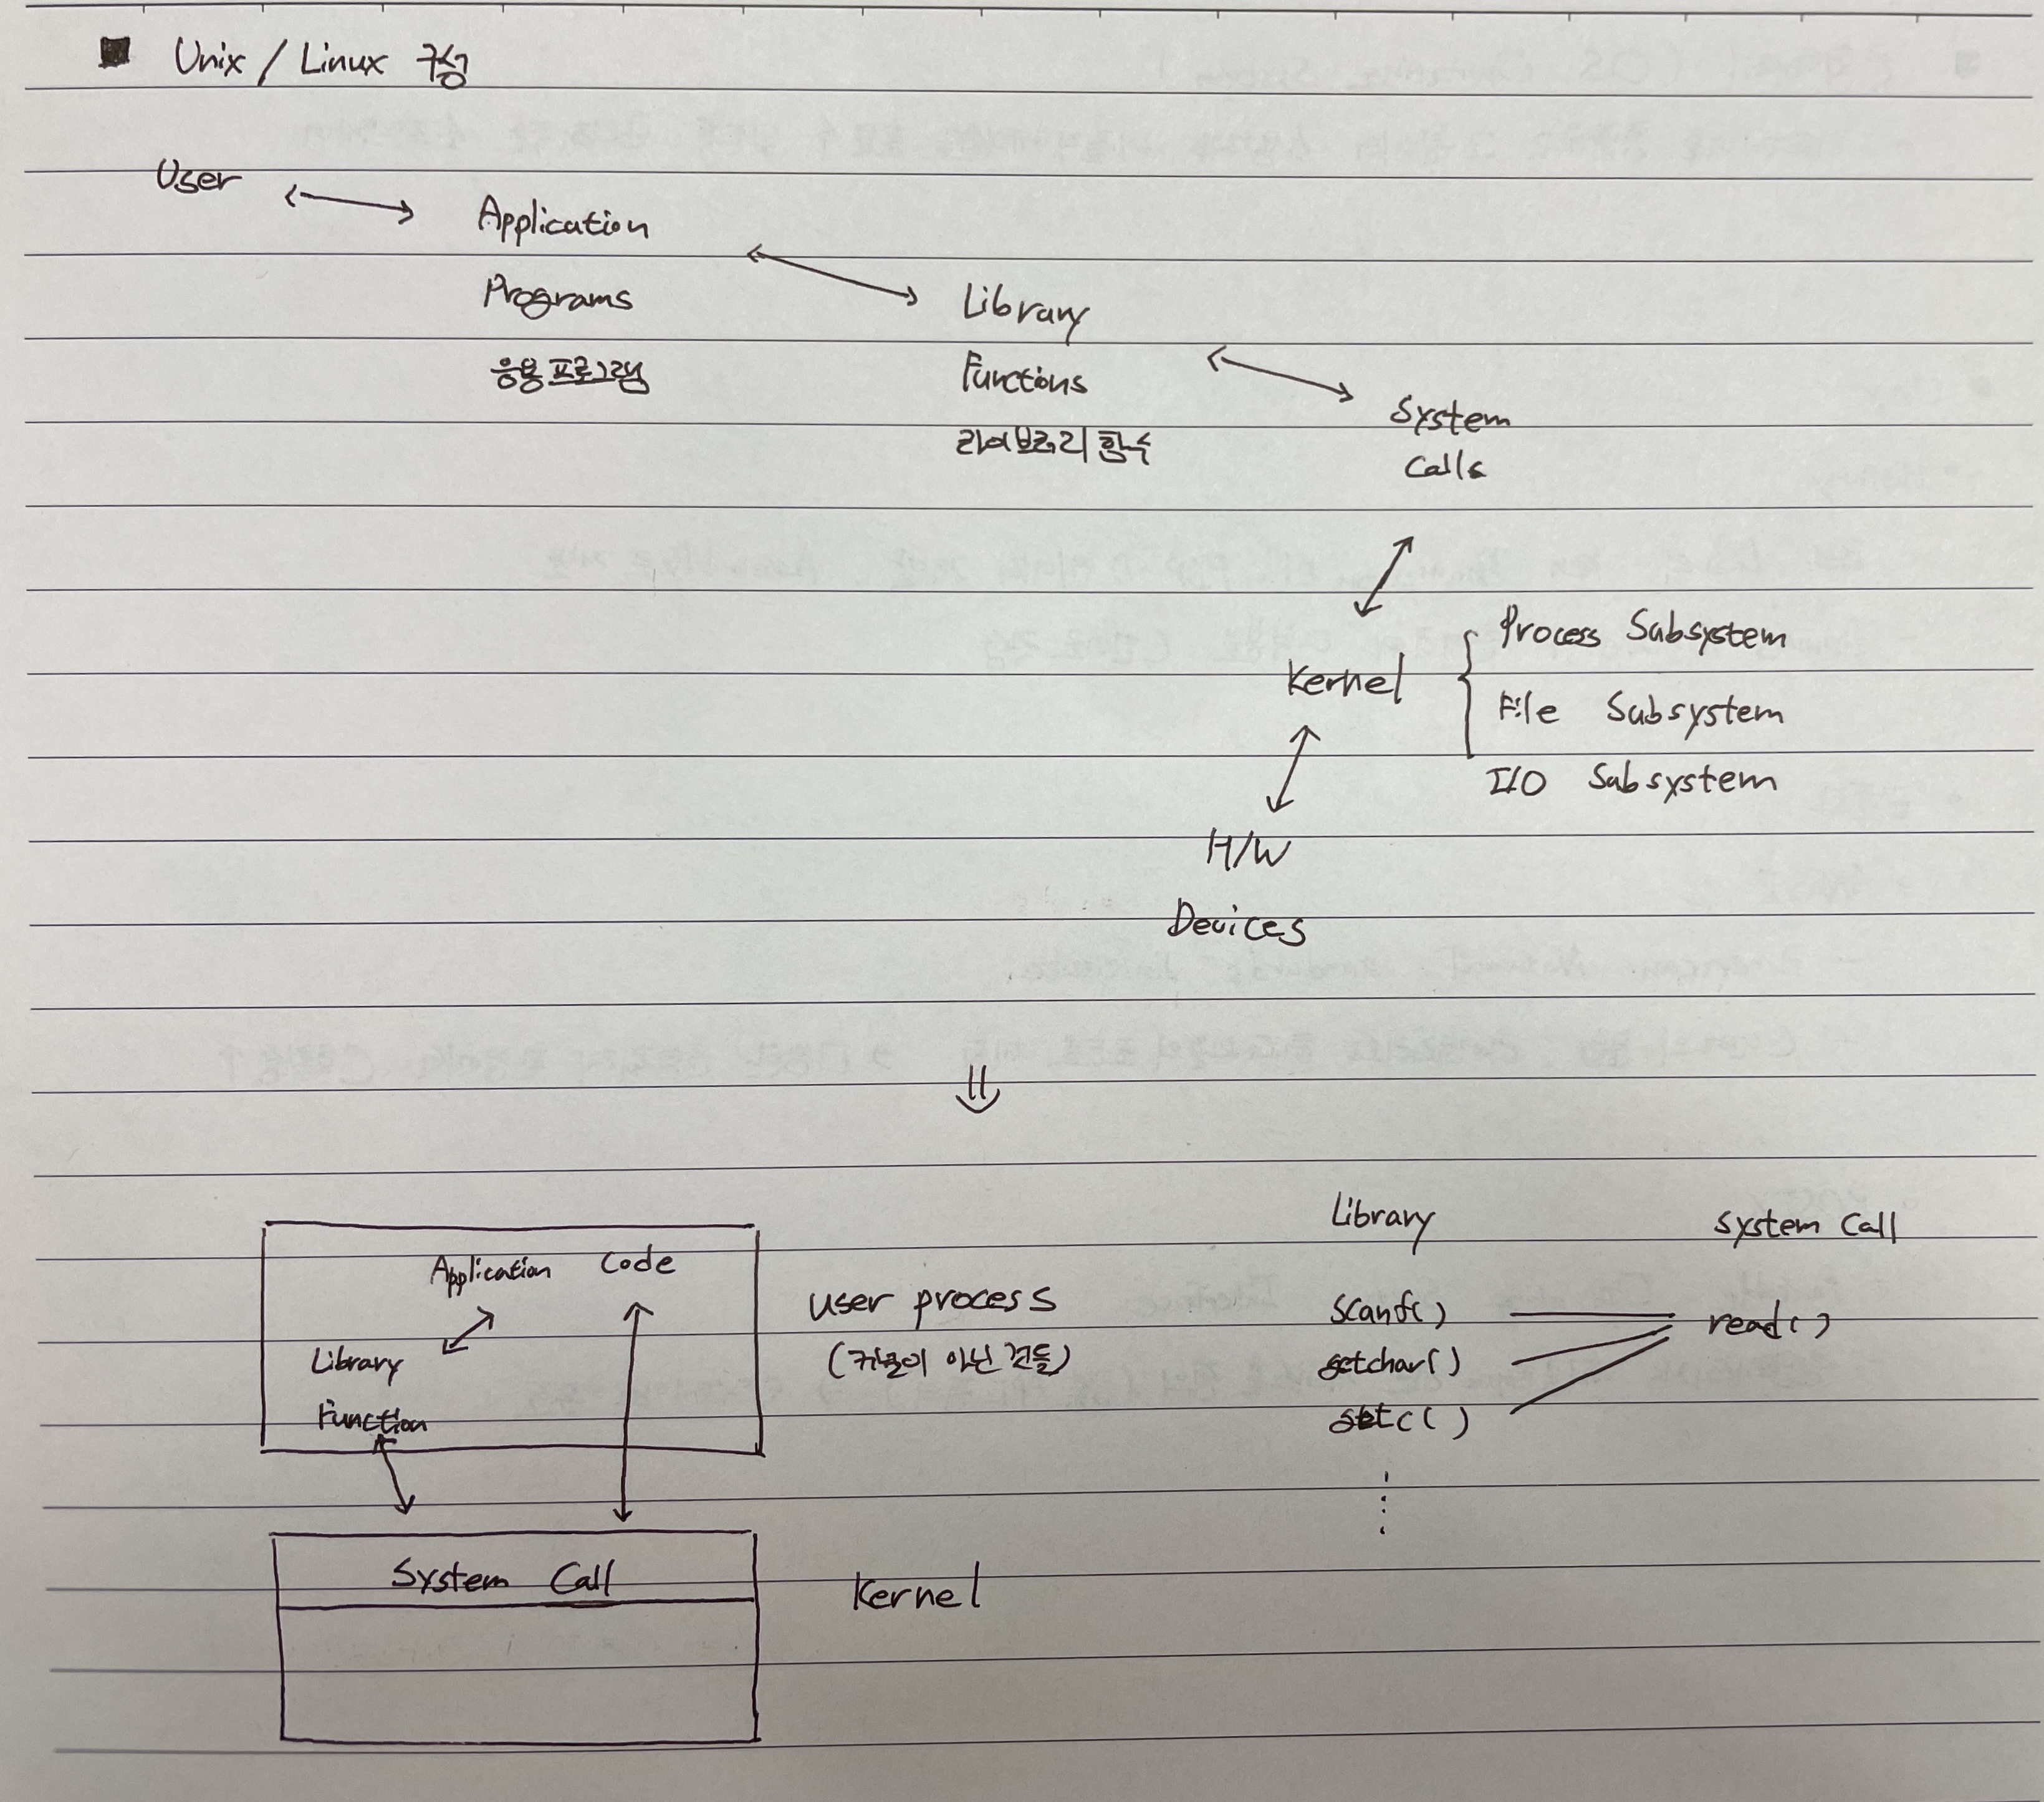 ■ Unix / Linux 구성
User
Application
Programs
응용프로그램
Library
Functions
라이브러리 함수
System
Calls
Kernel
Process Subsystem
File Subsystem
I/O Subsystem
H/W
Devices
Application Code
Library
Function
user process
(커널이 아닌 것들)
System Call
Kernel
Library
System Call
scanf()
read()
getchar()
getc()
⋮